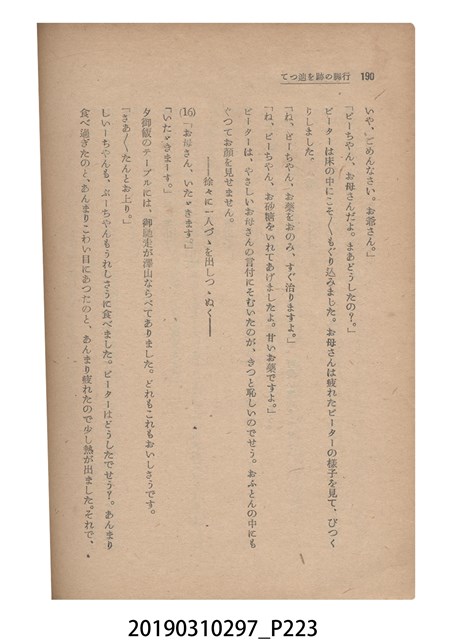 行脚の跡を追つて 190
いや、ごめんなさい。お爺さん。」
「ピーちやん、お母さんだよ。まあどうしたの？。」
ピーターは床の中にこそ〱もぐり込みました。お母さんは疲れたピーターの様子を見て、びつく
りしました。
「ね、ピーちやん、お薬をおのみ、すぐ治りますよ。」
「ね、ピーちやん、お砂糖をいれてあげましたよ。甘いお薬ですよ。」
ピーターは、やさしいお母さんの言付にそむいたのが、きつと恥しいのでせう。おふとんの中にも
ぐつてお顔を見せません。
――徐々に一人づゝを出しつゝぬく――
(16)「お母さん、いたゞきます。」
「いたゞきまーす。」
夕御飯のテーブルには、御馳走が澤山ならべてありました。どれもこれもおいしさうです。
「さあ〱たんとお上り。」
しいーちやんも、ぷーちやんもうれしさうに食べました。ピーターはどうしたでせう？。あんまり
食べ過ぎたのと、あんまりこわい目にあつたのと、あんまり疲れたので少し熱が出ました。それで、
20190310297_P223